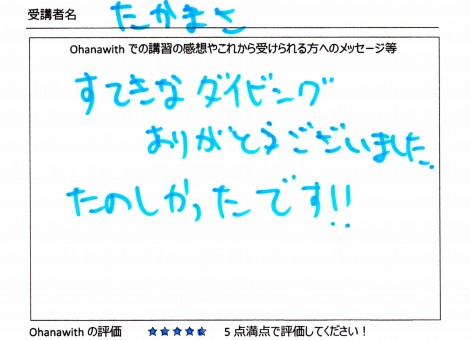 受講者名 たかまさ
Ohanawith での講習の感想やこれから受けられる方へのメッセージ等
すてきなダイビング
ありがとうございました。
たのしかったです!!
Ohanawith の評価 ★★★★★ 5点満点で評価してください!